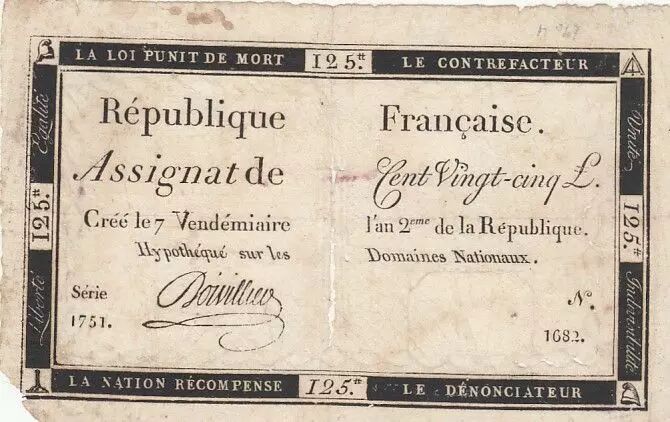 LA LOI PUNIT DE MORT 125.tt LE CONTREFACTEUR
République Française.
Assignat de Cent Vingt-cinq £.
Créé le 7 Vendémiaire l'an 2eme de la République.
Hypothéqué sur les Domaines Nationaux.
Série N.
1751. 1682.
LA NATION RÉCOMPENSE 125.tt LE DÉNONCIATEUR
Liberté 125.tt Égalité
Unité 125.tt Indivisibilité